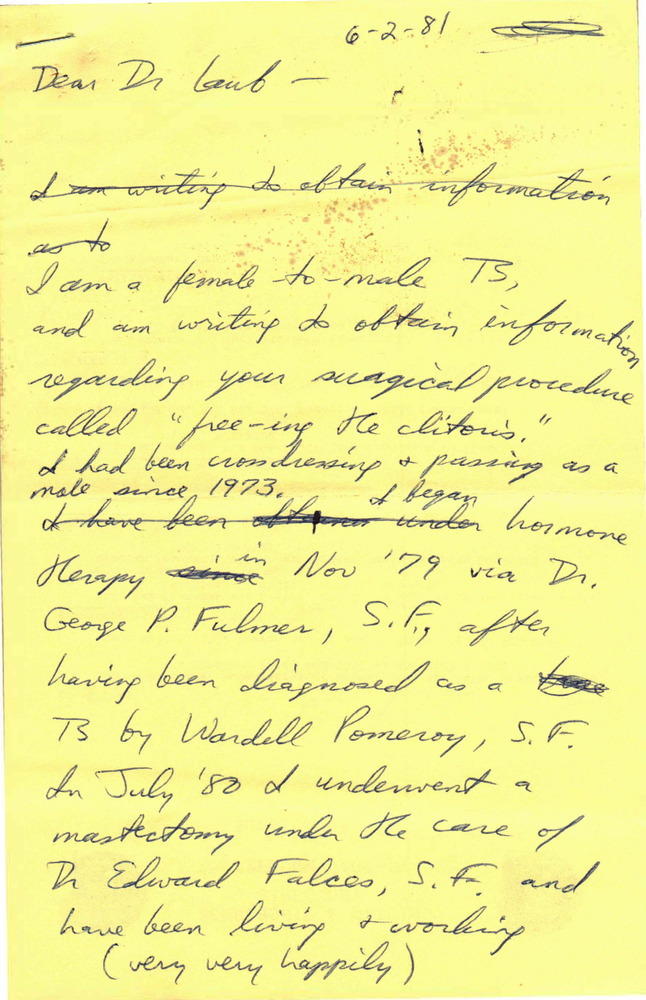 6-2-81
Dear Dr Laub —
I am writing to obtain information
as to
I am a female-to-male TS,
and am writing to obtain information
regarding your suragical procedure
called "free-ing the clitoris."
I had been crossdressing + passing as a
male since 1973. I began
I have been under hormone
therapy since in Nov '79 via Dr.
George P. Fulmer, S.F., after
having been diagnosed as a
TS by Wardell Pomeroy, S.F.
In July '80 I underwent a
mastectomy under the care of
Dr Edward Falces, S.F. and
have been living + working
(very very happily)